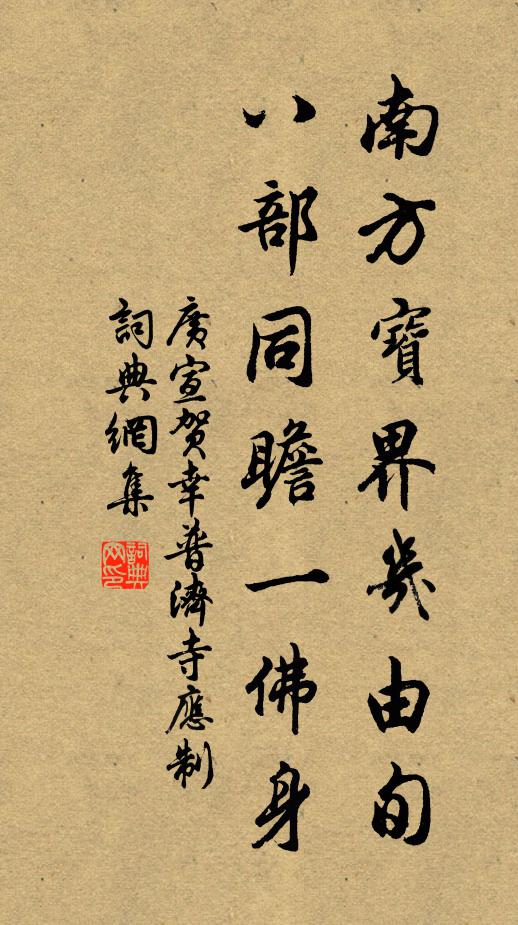 南方寶界幾由旬
八部同瞻一佛身
廣宣賀幸普濟寺應制
詞典網集
詞典網印